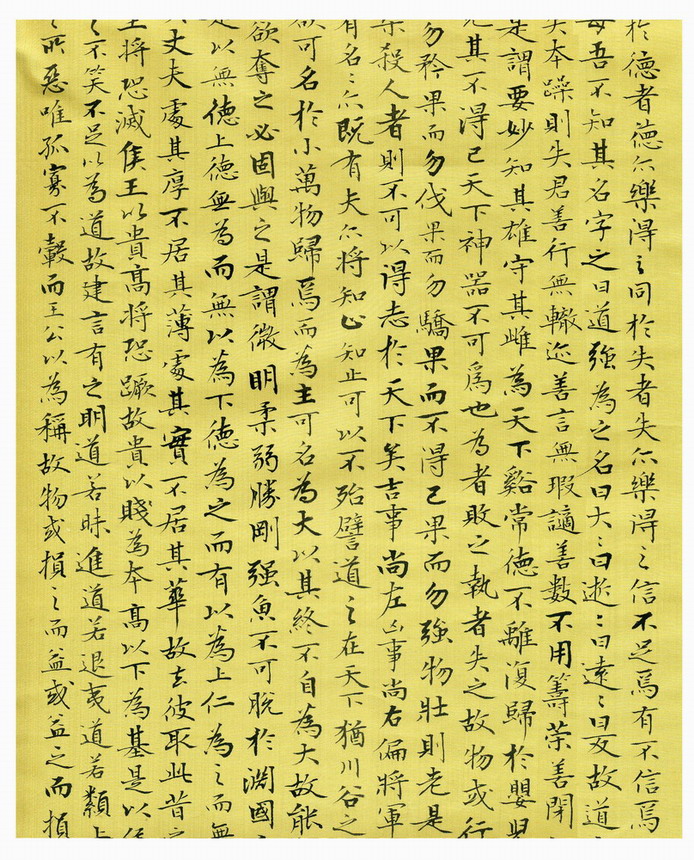 於德者德亦樂得之同於失者失亦樂得之信不足焉有不信焉
母吾不知其名字之曰道強為之名曰大〻曰逝〻曰遠〻曰反故道
失本躁則失君善行無轍迹善言無瑕謫善數不用籌策善閉
是謂要妙知其雄守其雌為天下谿常德不離復歸於嬰兒
見其不得已天下神器不可為也為者敗之執者失之故物或行
勿矜果而勿伐果而勿驕果而不得已果而勿強物壯則老是
樂殺人者則不可以得志於天下矣吉事尚左凶事尚右偏將軍
有名〻亦既有夫亦將知止知止可以不殆譬道之在天下猶川谷之
欲可名於小萬物歸焉而為主可名為大以其終不自為大故能
欲奪之必固與之是謂微明柔弱勝剛强魚不可脫於淵國
是以無德上德無為而無以為下德為之而有以為上仁為之而無
丈夫處其厚不居其薄處其實不居其華故去彼取此昔之
王將恐滅侯王以貴高將恐蹶故貴以賤為本高以下為基是以侯
之不笑不足以為道故建言有之明道若昧進道若退夷道若纇上
所惡唯孤寡不穀而王公以為稱故物或損之而益或益之而損